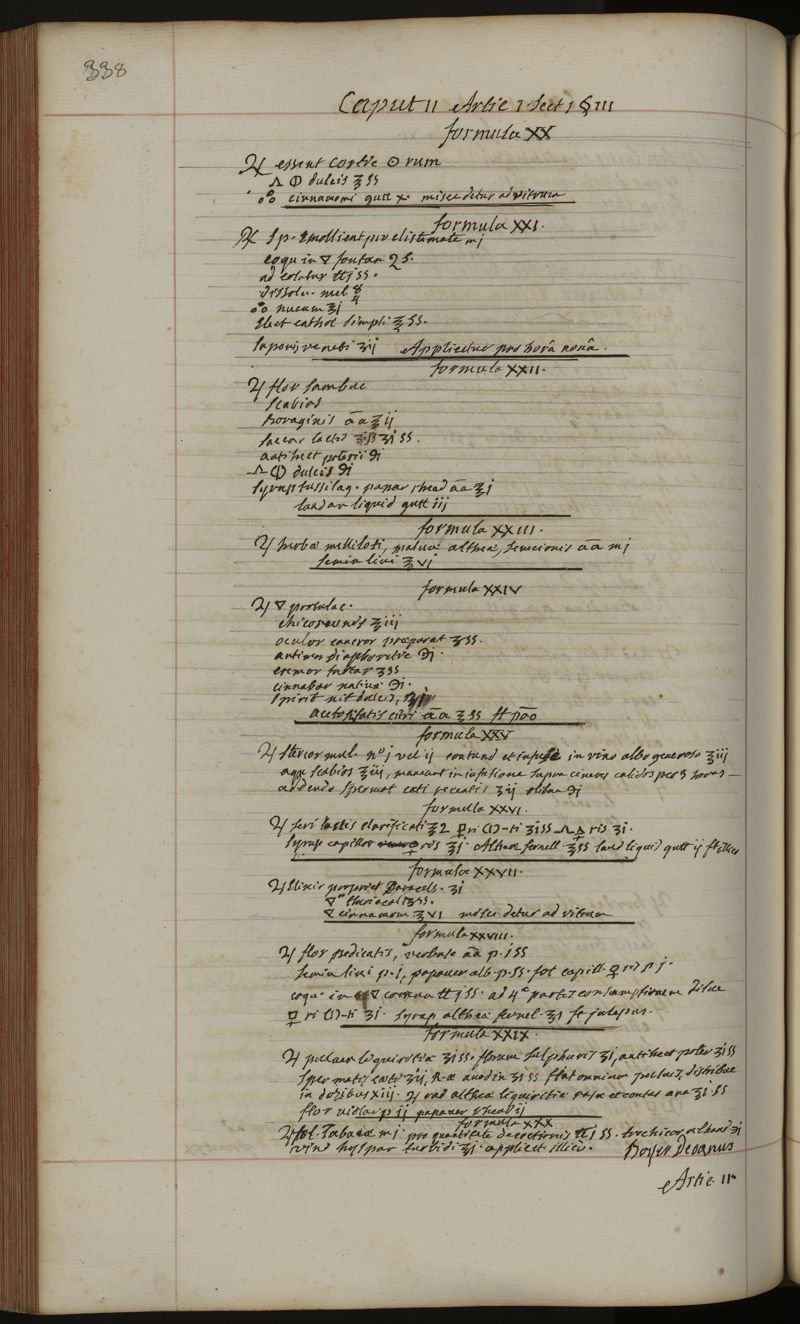 338
Caput II Artic 1 Sect 1 § III
formula XX
♃ essent Cortic ☉ rum
🜂 🜕 dulcis ʒ ss
cinnamomi gutt x misce detur ad vitrum
formula XXI.
♃ Sp. Emollient pro clistemate mj
coqu in 🜄 fontan 2 s.
ad colatur ℔j ss.
dissolu. mel
nucum ʒj
Elect cathol simpli ℥ ss.
saponis veneti ʒij Applicetur pro horâ nonâ.
formula XXII.
♃ flor sambuc
scabios
Boraginis āā ℥ij
saccar lactis ʒj ss.
antihect poterii ℈j
🜂 🜕 dulcis ℈j
syrup tussilag. papav rhead āā ℥j
laudan liquid gutt iij
formula XXIII.
♃ herba melliloti, malvæ altheæ, senecionis āā mj
semin lini ℥vj
formula XXIV
♃ 🜄 portulac.
chicoreunds ℥iij
oculor cancror præparat ʒss.
antimon diaphoretic ℈j.
cremor tartar ʒss
cinnabar nativa ℈j.
spirit nit dulcis,
acetositatis citri āā ℥ss ft pōo
formula XXV
♃ Stercor mul. nº j vel ij contund et infuse in vino albo generoso ℥iij
aqu scabios ℥iij, maneant in infusione supra cineres calidos per 3 horas —
addendo spermat ceti recentis ʒij oliban ℈j
formulla XXVI.
♃ seri lactis clarificati ℥2 🜿 ri 🜕-ti ʒj ss 🜂 🜍 ris ʒj.
syrup capillor ♀ris ℥j Altheæ fernell. ℥ss laud liquid gutt ij
formula XXVII.
♃ Elixir propriet Paracels. ʒj
🜄 theriacali ʒss.
🜄 cinnamom ℥VI misce detur ad vitrum
formula XXVIII.
♃ flor pedicatis, verbasc āā p. j ss
semin lini p. j, papaver alb. p. ss. fol capill. ♀ris p j.
coqu. in 🜄 commu ℔j ss. ad 4æ partis consumptionem dilue
🜿 ri 🜕-ti ʒj. syrup altheæ fernel. ℥j ft julepus.
formula XXIX.
♃ pulver liquiritiæ ʒj ss. florum sulphuris ʒj, antihect poter ʒj ss
spermatis ceti ʒij, anodin ʒj ss fiat omnium pulvis, distribue
in dozibus xiij. ♃ rad altheæ liquiritiæ rasæ et contus ana ʒj. ss
flor violar p ij papaver rhead ij
formula XXX
♃ fol. Tabacæ mj. pro quantitate decoctionis ℔j ss. trochiscor alhand ʒj
vini hyspan turbidi ℥j. applicet illicò. Boyer Decanus
Artic II